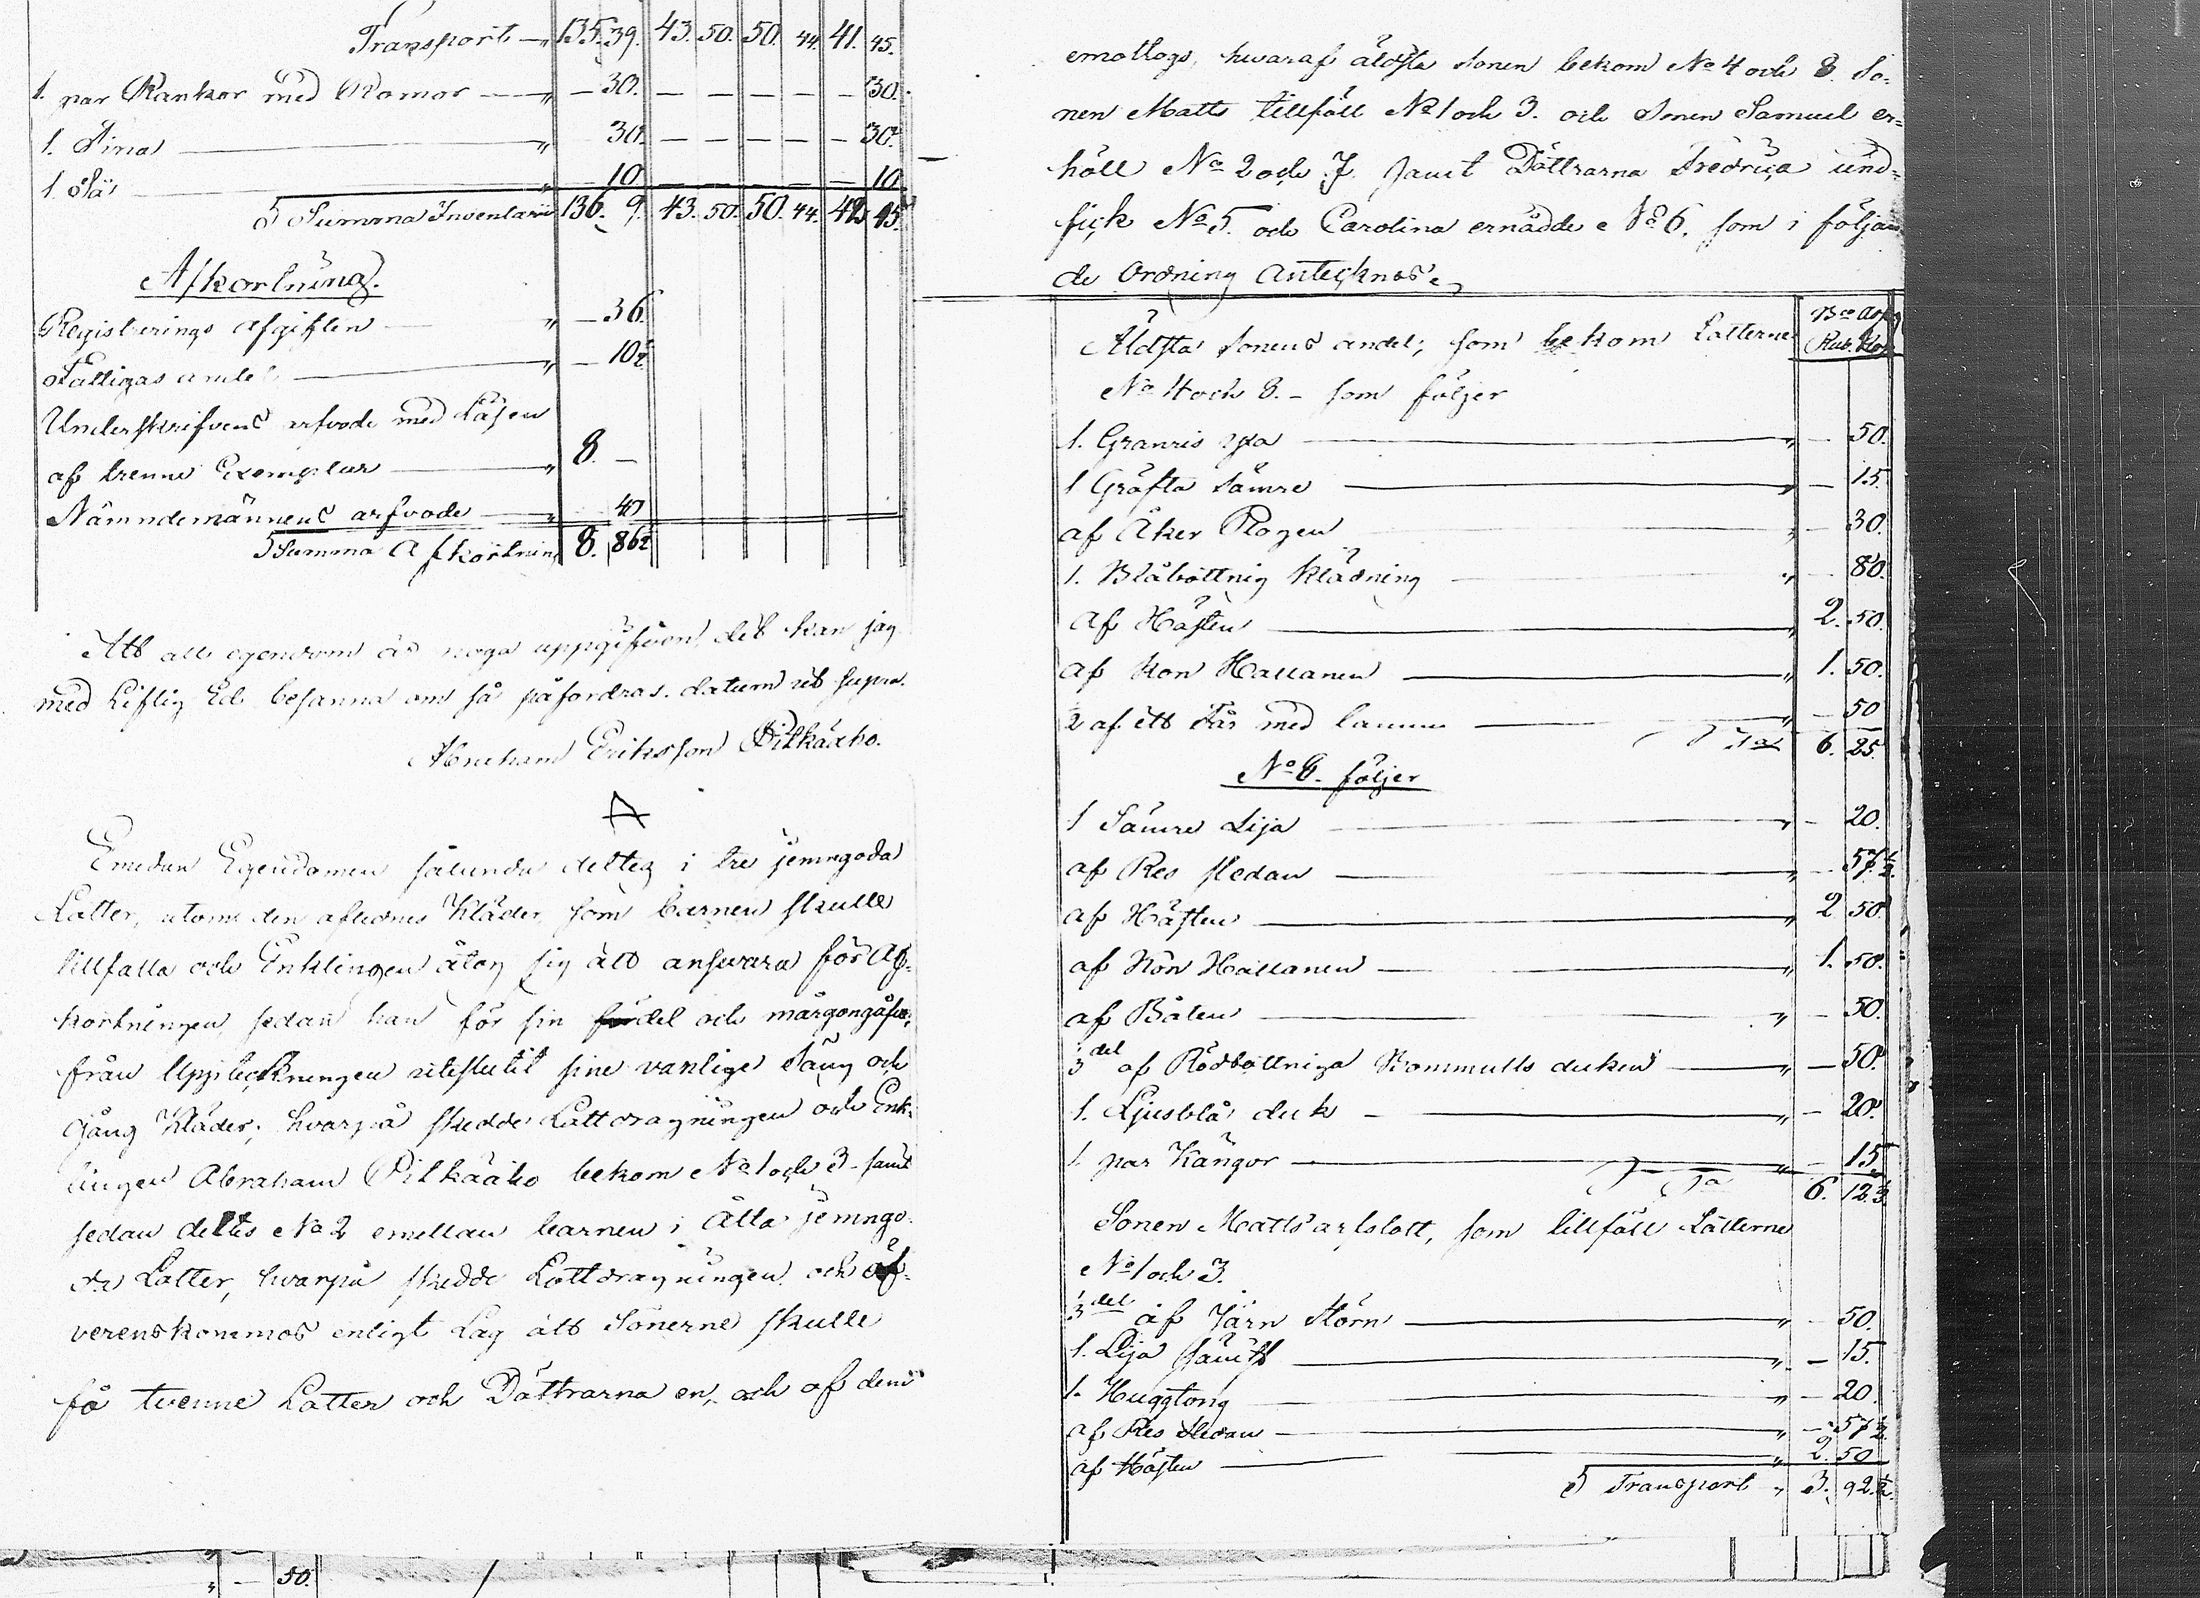 Transport — „ 135. 39. 43. 50. 50. 44. 41. 45.
1. par Rankor med Romor — „ — 30. — — — — — 30.
1. Tina — „ 30. — — — — — 30.
1 Så — „ — 10. — — — — — 10
Summa Inventarii 136. 9. 43. 50. 50. 44. 42. 15.
Afkortning.
Registerings afgiften — „ — 36.
Fattigas andel — „ — 10½
Underskrifvens arfvode med Lösen
af trenne Exemplar — „ 8. —
Nämndemännens arfvode — „ 40
Summa Afkortning 8. 86½
Att all egendom är noga uppgifven, det kan jag
med Liflig Ed besanna om så påfordras. datum ut supra.
Abraham Eriksson Pilkäaho.
Emedan Egendomen sålunda delteg i tre jemngoda
Lotter, utom den aflednes Kläder, som barnen skulle
tillfalla och Enklingen åtog sig att answara för Af-
kortningen, sedan han för sin fördel och morgongåfva,
från Uppteckningen uteslutit sine vanlige Säng och
Gång Kläder; hvarpå skedde Lottdragningen och Enk-
lingen Abraham Pilkäaho bekom No 1 och 3 samt
sedan deltes No 2 emellan barnen i Åtta jemngo-
da Lotter, hvarpå skedde Lottdragningen och öf-
verenskommos enligt Lag att Sönerne skulle
få tvenne Lotter och Döttrarna en, och af dem
emottogs, hvaraf äldsta sonen bekom No 4 och 8. So-
nen Matts tillföll No 1 och 3. och Sonen Samuel er-
höll No 2 och 7. samt Döttrarna Fredrica und-
fick No 5. och Carolina ernådde No 6. som i följan-
de Ordning antecknas.
Äldsta sonens andel, som bekom Lotterne
Rub. Kop
No 4 och 8. – som följer
1. Granris yxa — „ — 50.
1 Gräfta sämre — „ — 15.
af Åker Rogen — „ — 30.
1. Blåbottnig Klädning — „ — 80.
af Hästen — „ 2. 50.
af Kon Hallanen — „ 1. 50.
½ af ett Får med lamm — „ — 50
6. 25.
No 8. följer
1 Sämre Lija — „ — 20.
af Res sledan — „ — 57½
af Hästen — „ 2. 50.
af Kon Hallanen — „ 1. 50.
af Båten — „ — 50.
⅓ del af Rödbottniga Bommulls duken — „ — 50.
1. Ljusblå duk — „ — 20.
1. par Kängor — „ — 15.
6. 12½
Sonen Matts arfslott, som tillföll Lotterne
No 1 och 3.
⅓ del af Järn Störn — „ — 50.
1. Lija — „ — 15.
1. Huggtong — „ — 20
af Res sledan — „ — 57½
af Hästen — „ 2. 50
Transport „ 3. 92½.
„ — 50.